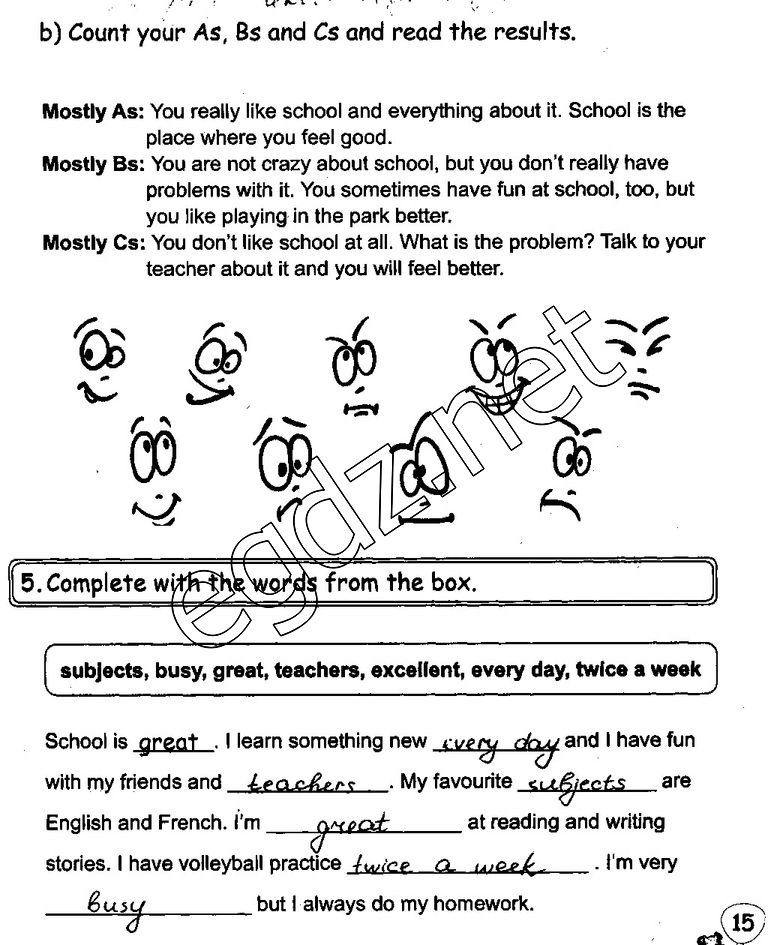 b) Count your As, Bs and Cs and read the results.
Mostly As: You really like school and everything about it. School is the
place where you feel good.
Mostly Bs: You are not crazy about school, but you don't really have
problems with it. You sometimes have fun at school, too, but
you like playing in the park better.
Mostly Cs: You don't like school at all. What is the problem? Talk to your
teacher about it and you will feel better.
egdz.net
5. Complete with the words from the box.
subjects, busy, great, teachers, excellent, every day, twice a week
School is great. I learn something new every day and I have fun
with my friends and teachers. My favourite subjects are
English and French. I'm great at reading and writing
stories. I have volleyball practice twice a week. I'm very
busy but I always do my homework.
15